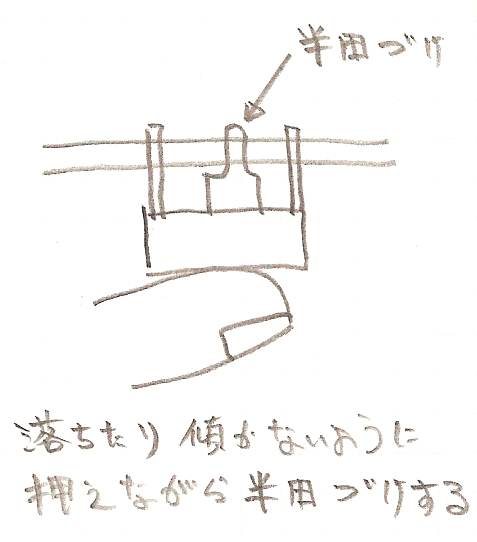 半田づけ
落ちたり傾かないように
押えながら半田づけする